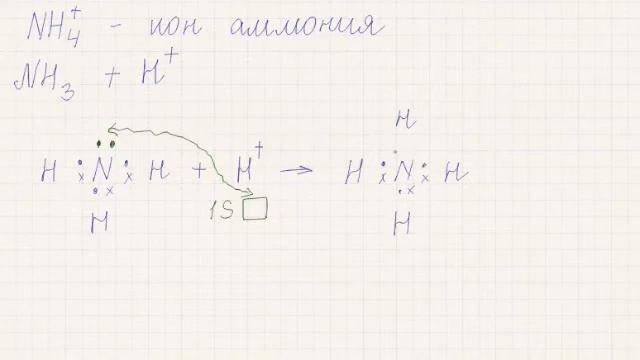 NH₄⁺ - ион аммония
NH₃ + H⁺
H
H N H + H⁺ → H N H
1S
H H